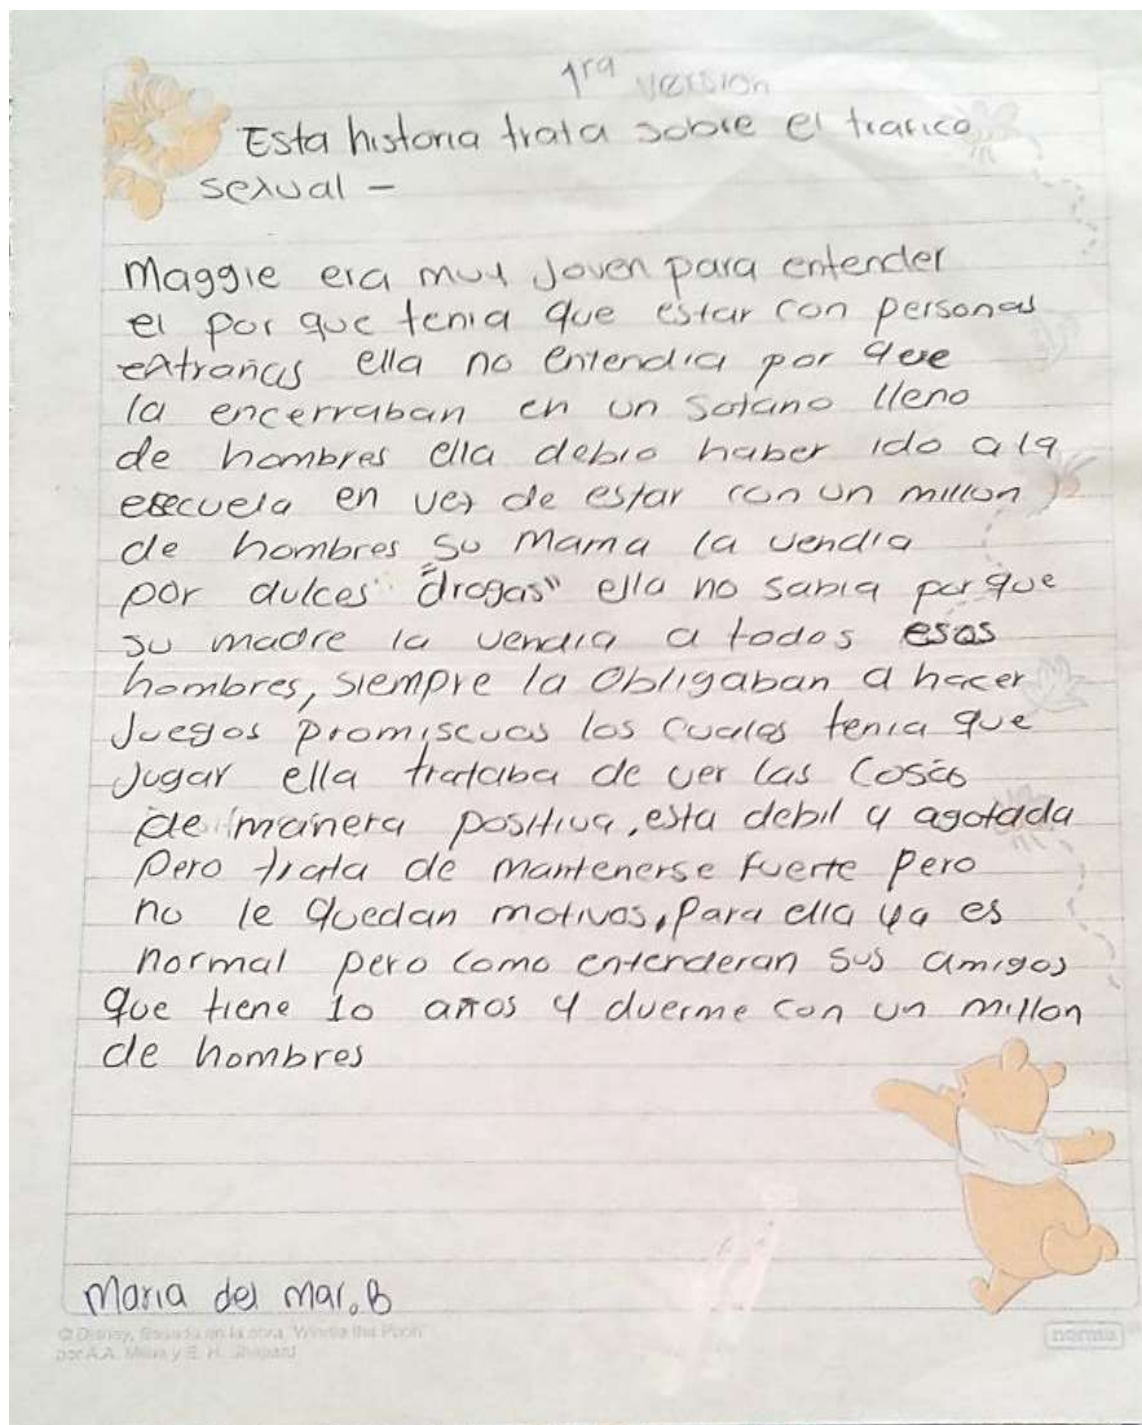 1ra version
Esta historia trata sobre el trafico
sexual –
Maggie era muy joven para entender
el por que tenia que estar con personas
extrañas ella no entendia por que
la encerraban en un sotano lleno
de hombres ella debio haber ido a la
esecuela en vez de estar con un millon
de hombres su mama la vendia
por dulces "drogas" ella no sabia por que
su madre la vendia a todos esos
hombres, siempre la obligaban a hacer
juegos promiscuos los cuales tenia que
jugar ella trataba de ver las cosas
de manera positiva, esta debil y agotada
pero trata de mantenerse fuerte pero
no le quedan motivos, para ella ya es
normal pero como entenderan sus amigos
que tiene 10 años y duerme con un millon
de hombres
Maria del mar. B
© Disney, Basada en la obra "Winnie the Pooh"
por A.A. Milne y E. H. Shepard
norma